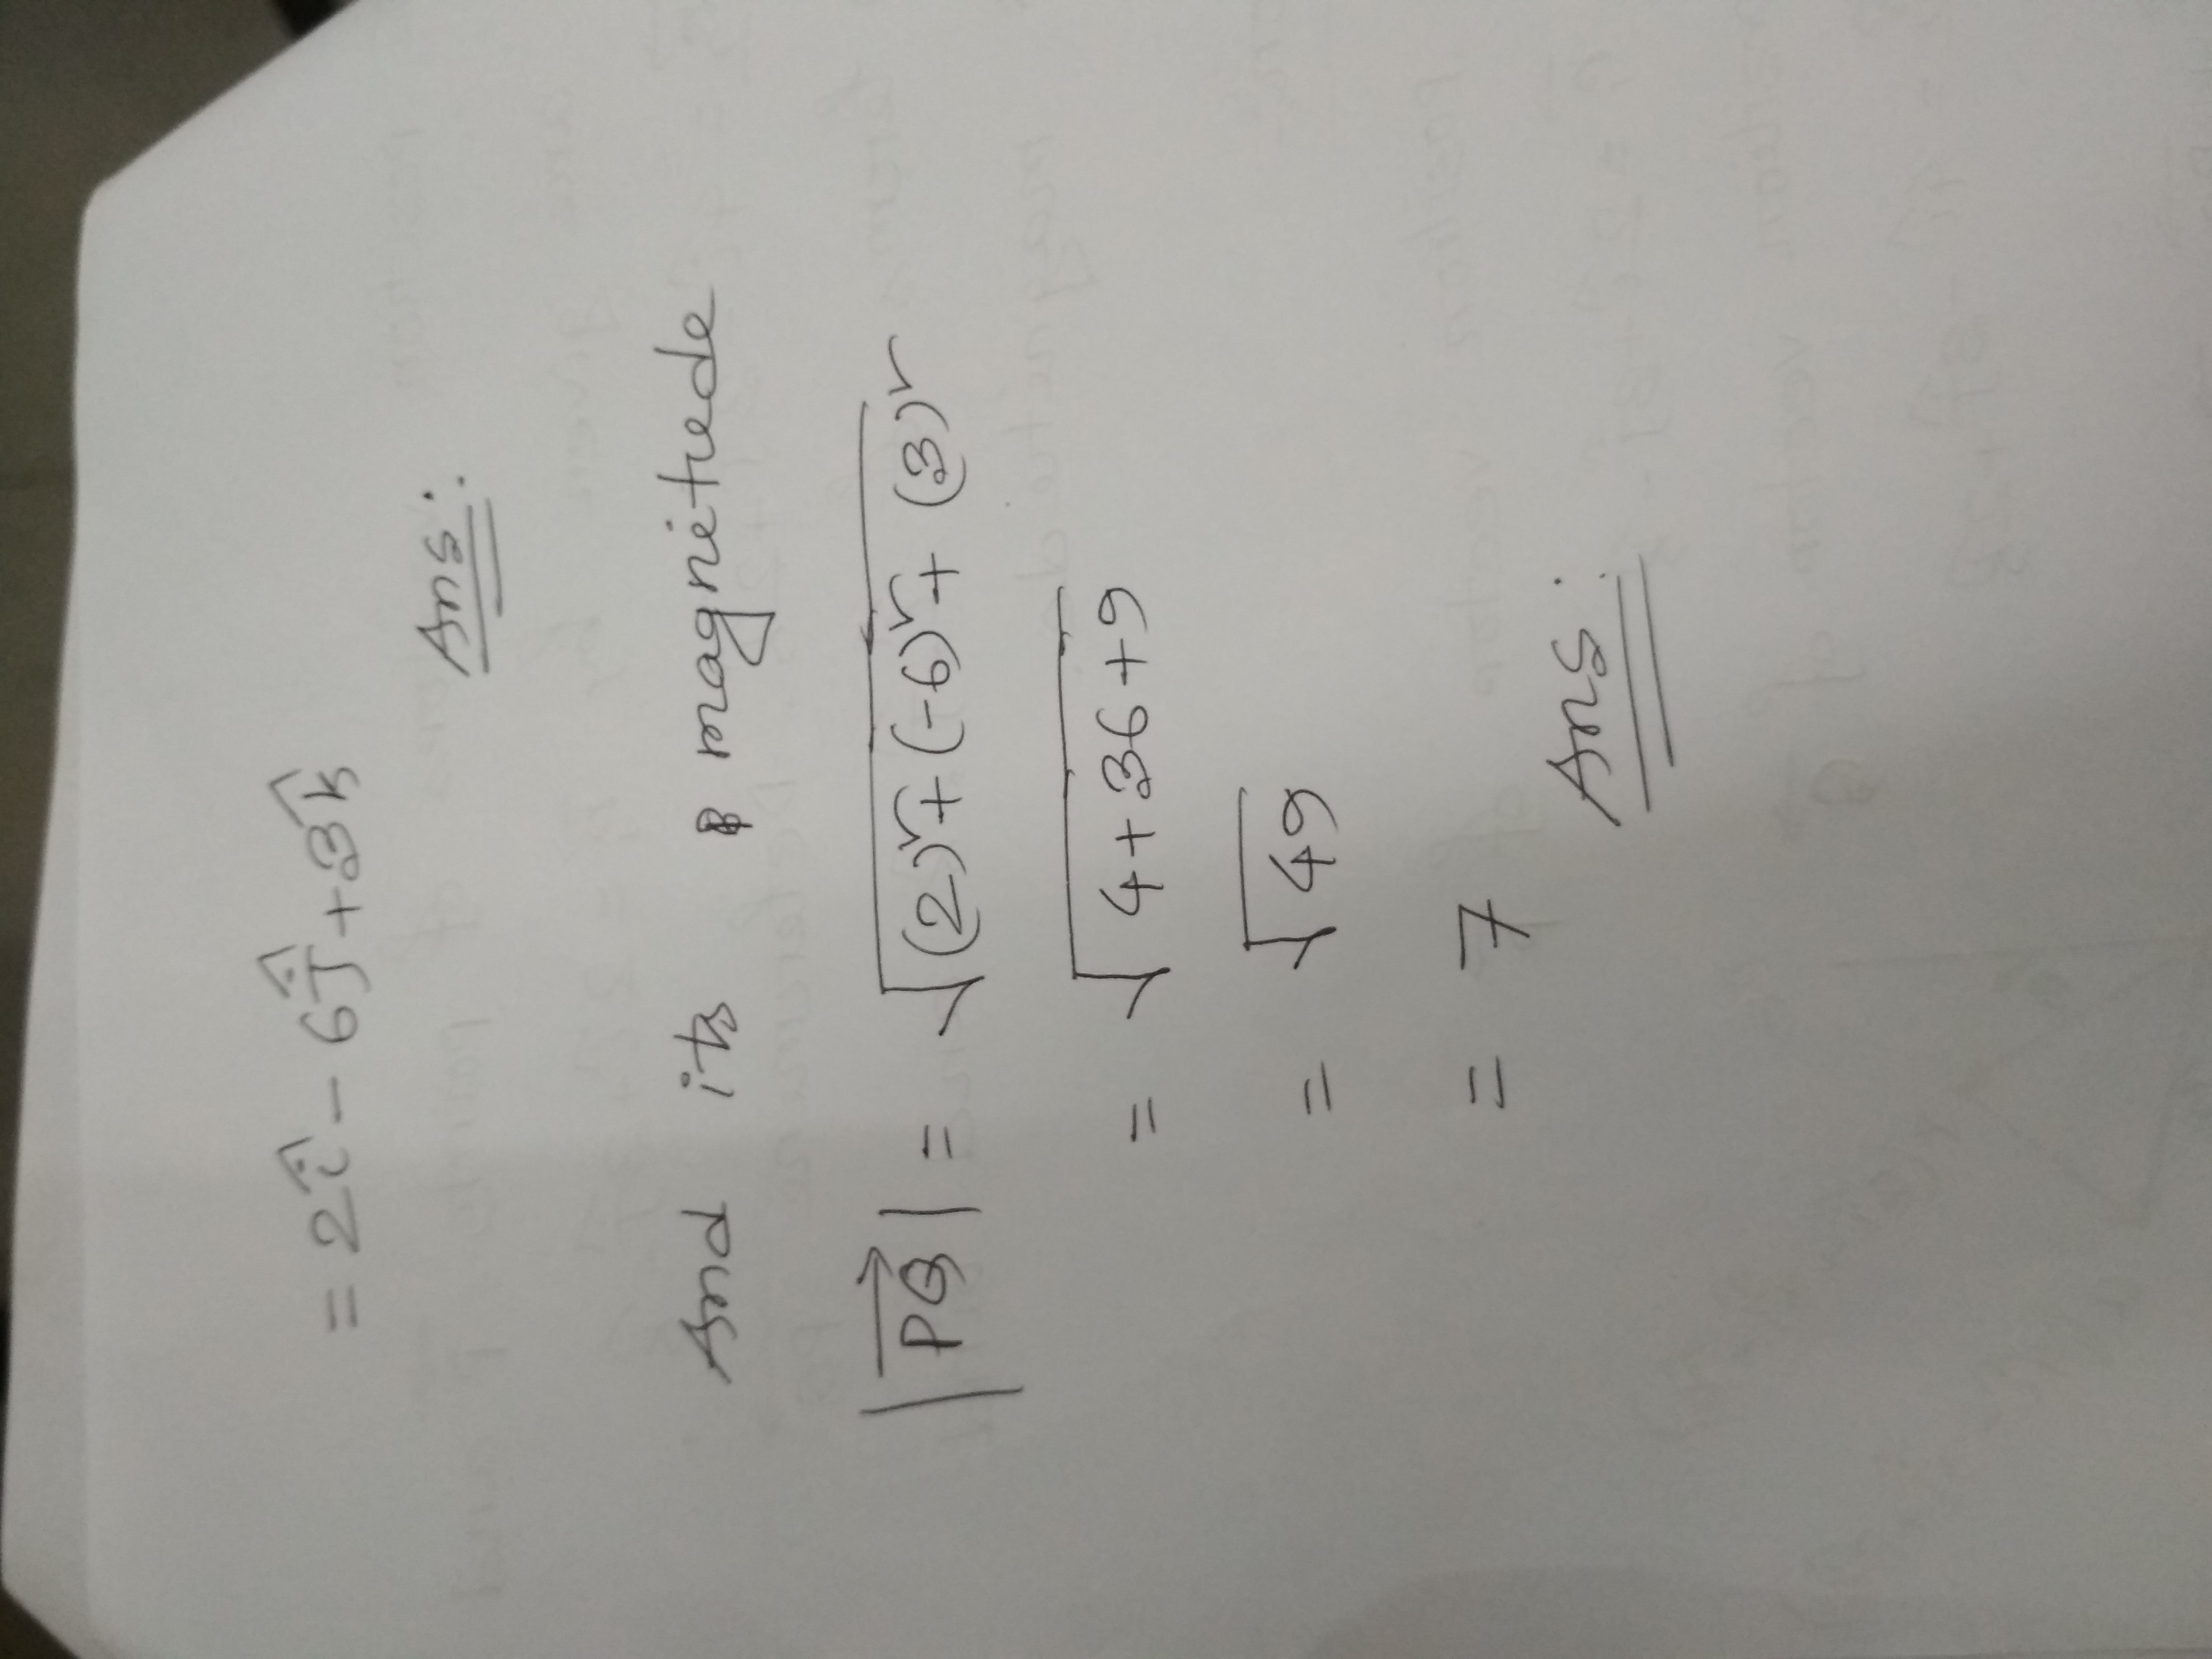 = 2î - 6ĵ + 3k̂
Ans:
And its magnitude
|PQ⃗| = √(2)² + (-6)² + (3)²
= √4+36+9
= √49
= 7
Ans: